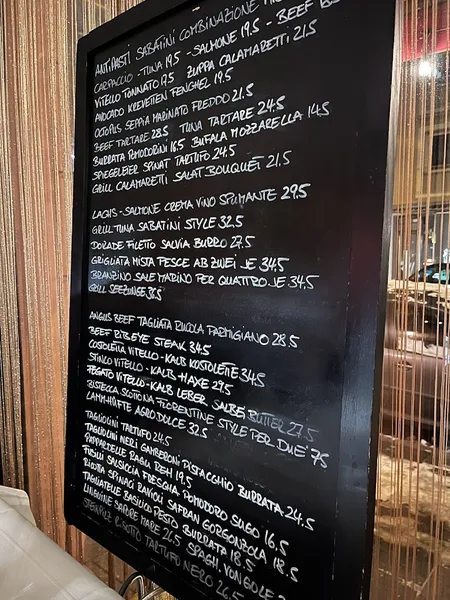 ANTIPASTI SABATINI COMBINAZIONE
CARPACCIO - TUNA 19.5 - SALMONE 19.5 - BEEF
VITELLO TONNATO 19.5 ZUPPA CALAMARETTI 21.5
AVOCADO KREVETTEN FENGHEL 19.5
OCTOPUS SEPPIA MARINATO FREDDO 21.5
BEEF TARTARE 28.5 TUNA TARTARE 24.5
BURRATA POMODORINI 16.5 BUFALA MOZZARELLA 14.5
SPIEGELEIER SPINAT TARTUFO 24.5
GRILL CALAMARETTI SALAT BOUQUET 21.5
LACHS - SALMONE CREMA VINO SPUMANTE 29.5
GRILL TUNA SABATINI STYLE 32.5
DORADE FILETTO SALVIA BURRO 27.5
GRIGLIATA MISTA PESCE AB ZWEI JE 34.5
BRANZINO SALE MARINO PER QUATTRO JE 34.5
GRILL SEEZUNGE
ANGUS BEEF TAGLIATA RUCOLA PARMIGIANO 28.5
BEEF RIB EYE STEAK 34.5
COSTOLETTA VITELLO - KALB KOTOLETTE 34.5
STINCO VITELLO - KALB HAXE 29.5
FEGATO VITELLO - KALB LEBER SALBEI BUTTER 27.5
BISTECCA SCOTTONA FIORENTINE STYLE PER DUE 75
LAMM-HÜFTE AGRODOLCE 32.5
TAGLIOLINI TARTUFO 24.5
TAGLIOLINI NERI GAMBERONI PISTACCHIO BURRATA 24.5
PAPPARDELLE RAGU REH 19.5
FUSILI SALSICCIA FRESCHA POMODORO SUGO 16.5
RICOTTA SPINACI RAVIOLI SAFRAN GORGONZOLA 18.5
TAGLIATELLE BASILICO PESTO BURRATA 18.5
LINGUINE SAPORE MARE 26.5 SPAGH. VONGOLE
RISOTTO TARTUFO NERO 26.5